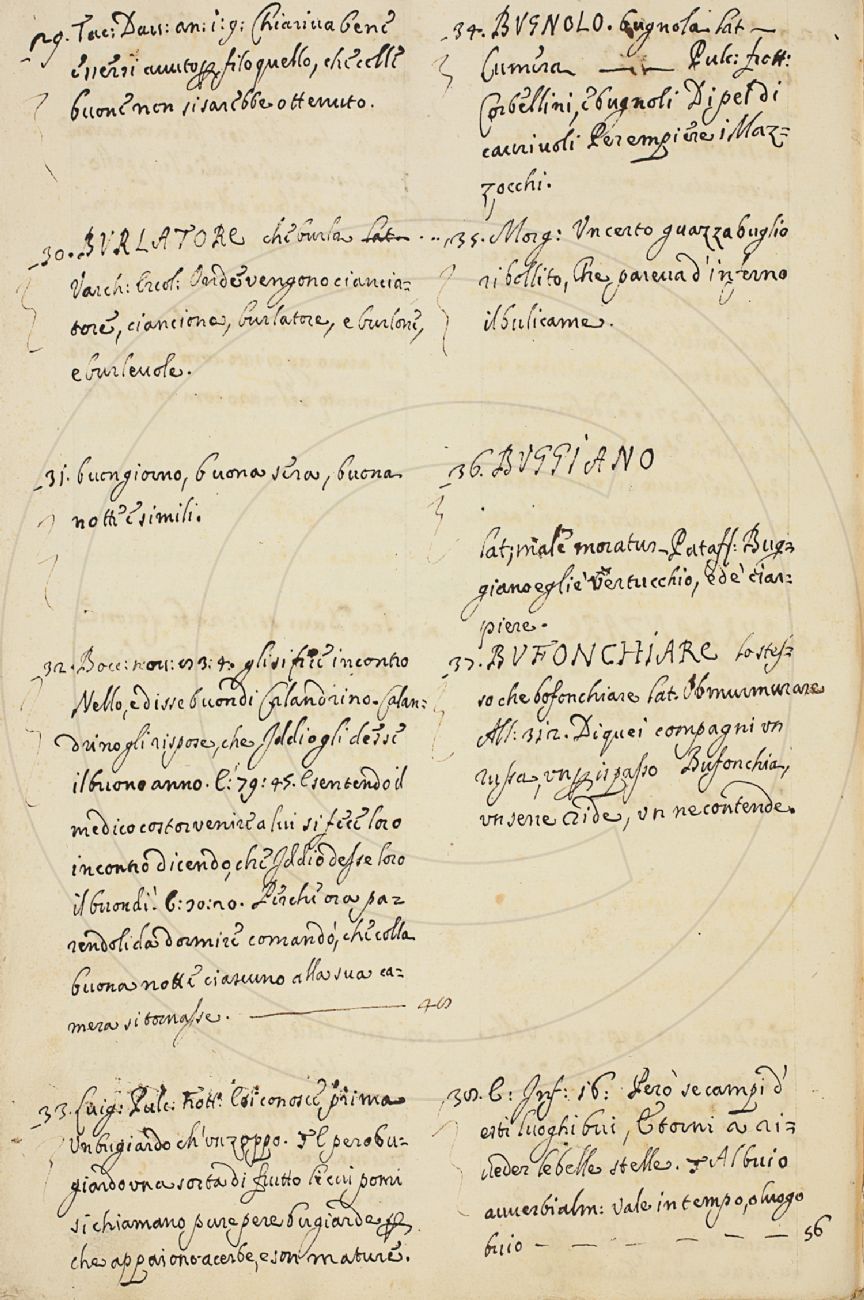 29. Tac: Dav: an: 1: 9: Chiariva bene
essersi avuto p filo quello, che colle
buone non si sarebbe ottenuto.
30. BVRLATORE che burla lat.
Varch: Ercol: Onde vengono ciancia=
tore, ciancione, burlatore, e burlone,
e burlevole.
31. buongiorno, buona sera, buona
notte e simili.
32. Bocc: nov: 83: 4. gli si fece incontro
Nello, e disse buondi Calandrino. Calan=
drino gli rispose, che Iddio gli desse
il buono anno. E: 79: 45. E sentendo il
medico costor venire a lui si fece loro
incontro dicendo, che Iddio desse loro
il buondì. E: 30: 20. Perche ora pa=
rendoli da dormire comandò, che colla
buona notte ciascuno alla sua ca=
mera si tornasse.
33. Luig: Pulc: frott: E si conosce prima
Un bugiardo ch'un zoppo. E pero bu=
giardo una sorta di frutto le cui pomi
si chiamano pure pere bugiarde
che appaiono acerbe, e son mature.
34. BVGNOLO. bugnola lat
Cumera Pulc: frott:
Corbellini, e bugnoli Di pel di
cavrivoli Per empiere i Maz=
zocchi.
35. Morg: Un certo guazzabuglio
ribollito, Che pareva d'inferno
il bulicame.
36. BVGGIANO
lat; male moratur Pataff: Bug=
giano egli è Vertucchio, ed è ciar=
piere.
37. BVFONCHIARE lo stes=
so che bofonchiare lat. Obmurmurare
All: 312. Di quei compagni un
russa, un p ispasso Bufonchia,
un se ne ride, un ne contende.
38. E: Inf: 16: Però se campi d
esti luoghi bui, E torni a ri=
veder le belle stelle. Al buio
avverbialm: vale in tempo, o luogo
buio 56